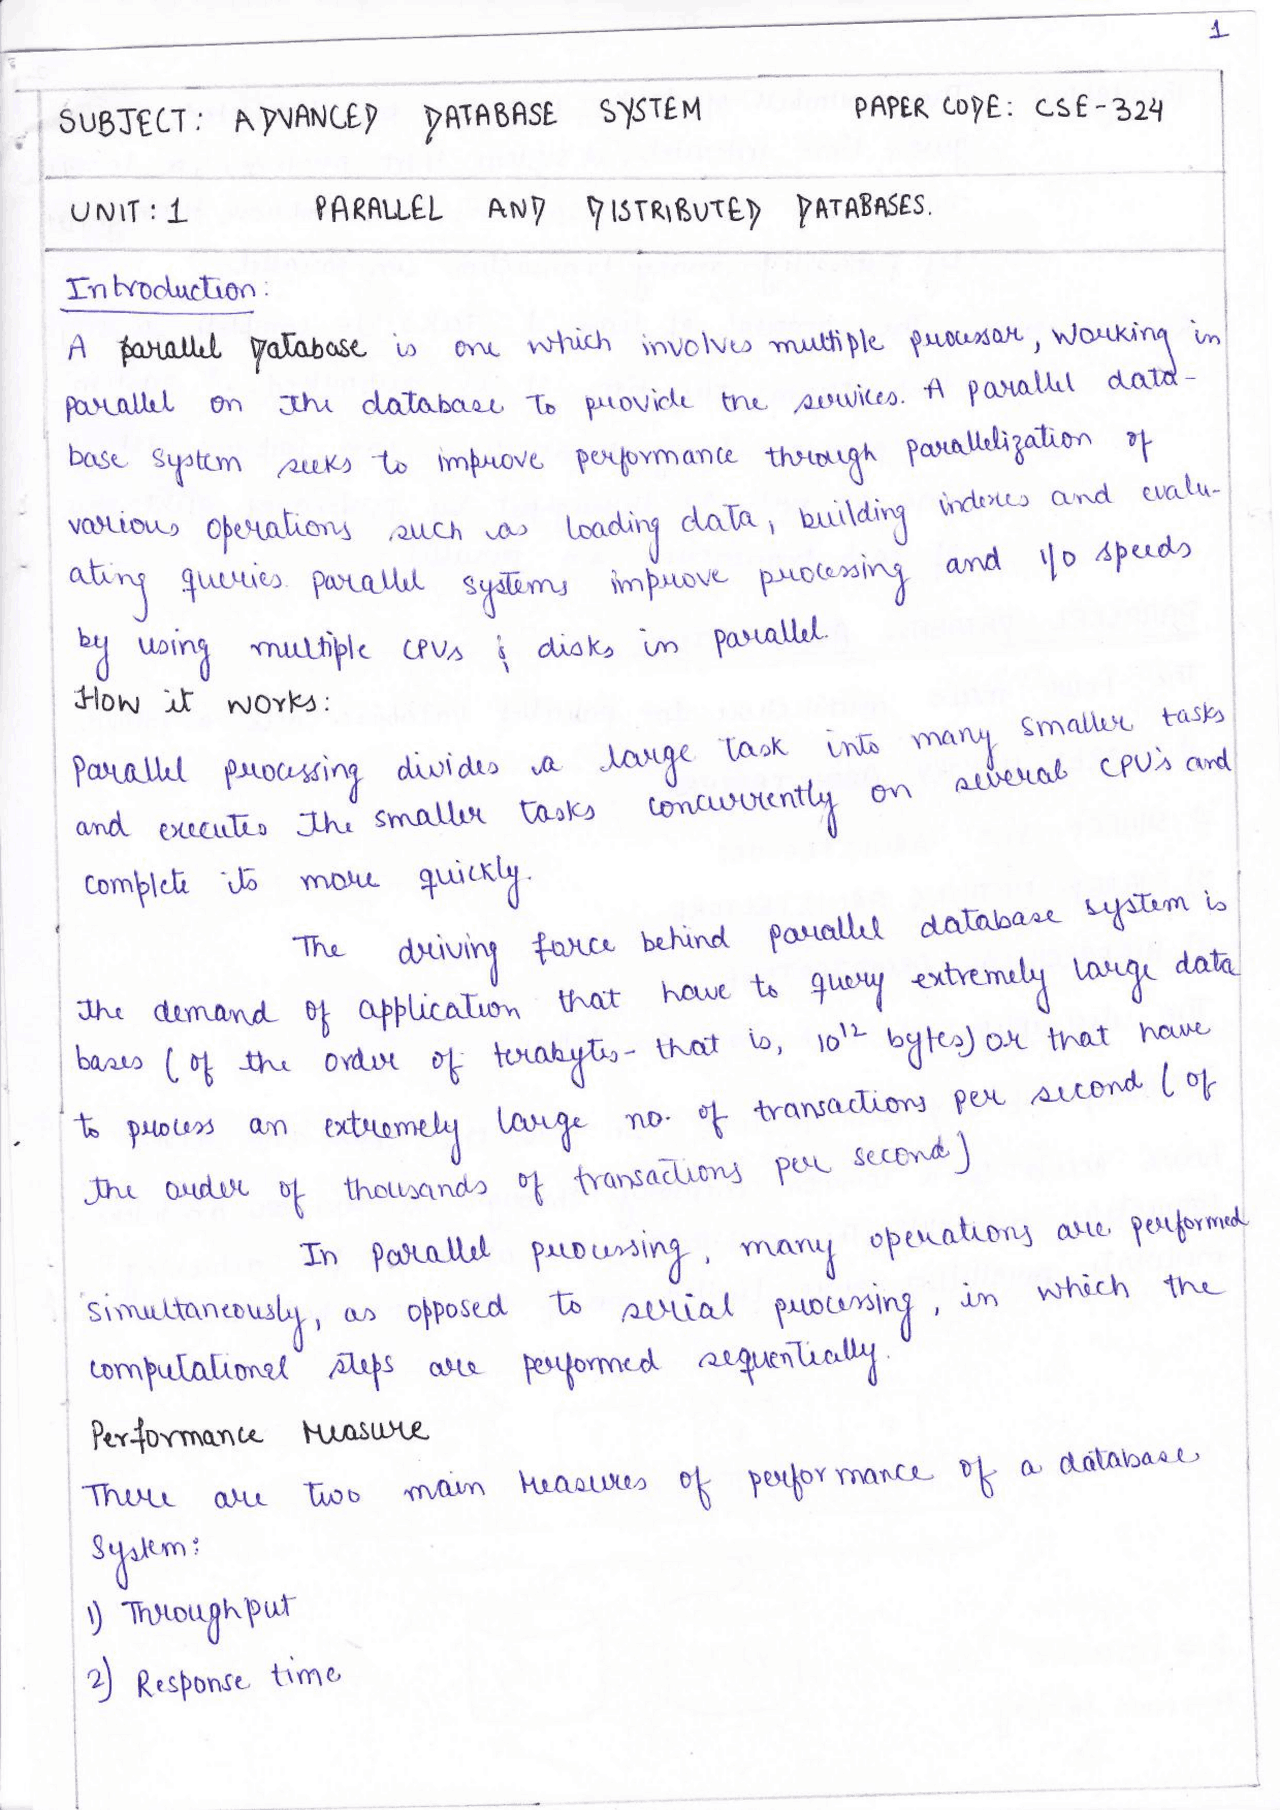 1
SUBJECT: ADVANCED DATABASE SYSTEM PAPER CODE: CSE-324
UNIT: 1 PARALLEL AND DISTRIBUTED DATABASES.
Introduction:
A parallel Database is one which involves multiple processor, working in
parallel on the database to provide the services. A parallel data-
base system seeks to improve performance through parallelization of
various operations such as loading data, building indexes and evalu-
ating queries. parallel systems improve processing and I/O speeds
by using multiple CPUs & disks in parallel.
How it works:
Parallel processing divides a large task into many smaller tasks
and executes the smaller tasks concurrently on several CPU's and
complete its more quickly.
The driving force behind parallel database system is
the demand of application that have to query extremely large data
bases (of the order of terabytes - that is, 10¹² bytes) or that have
to process an extremely large no. of transactions per second (of
the order of thousands of transactions per second)
In parallel processing, many operations are performed
simultaneously, as opposed to serial processing, in which the
computational steps are performed sequentially.
Performance Measure
There are two main measures of performance of a database
System:
1) Throughput
2) Response time